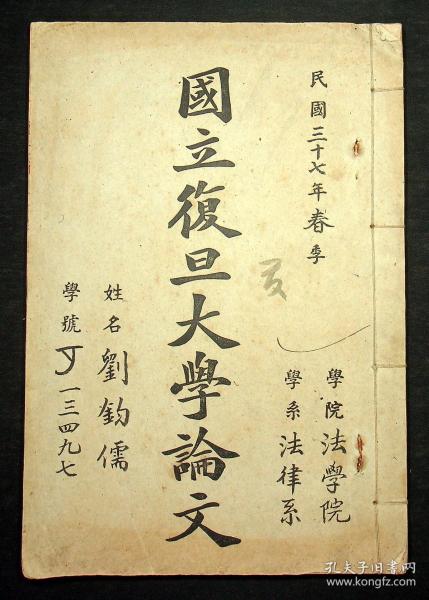 民國三十七年春季
學院法學院
學系法律系
國立復旦大學論文
姓名劉鈞儒
學號丁一三四九七
孔夫子旧书网
www.kongfz.com